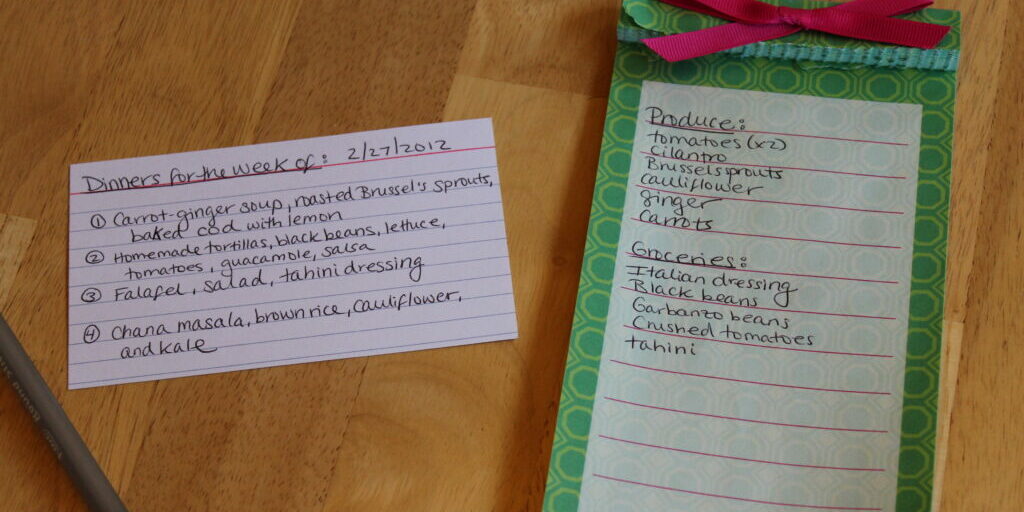 Dinners for the week of: 2/27/2012
① Carrot-ginger soup, roasted Brussel's sprouts,
baked cod with lemon
② Homemade tortillas, black beans, lettuce,
tomatoes, guacamole, salsa
③ Falafel, salad, tahini dressing
④ Chana masala, brown rice, cauliflower,
and kale
Produce:
tomatoes (x2)
Cilantro
Brussels sprouts
cauliflower
ginger
carrots
Groceries:
Italian dressing
Black beans
Garbanzo beans
Crushed tomatoes
tahini